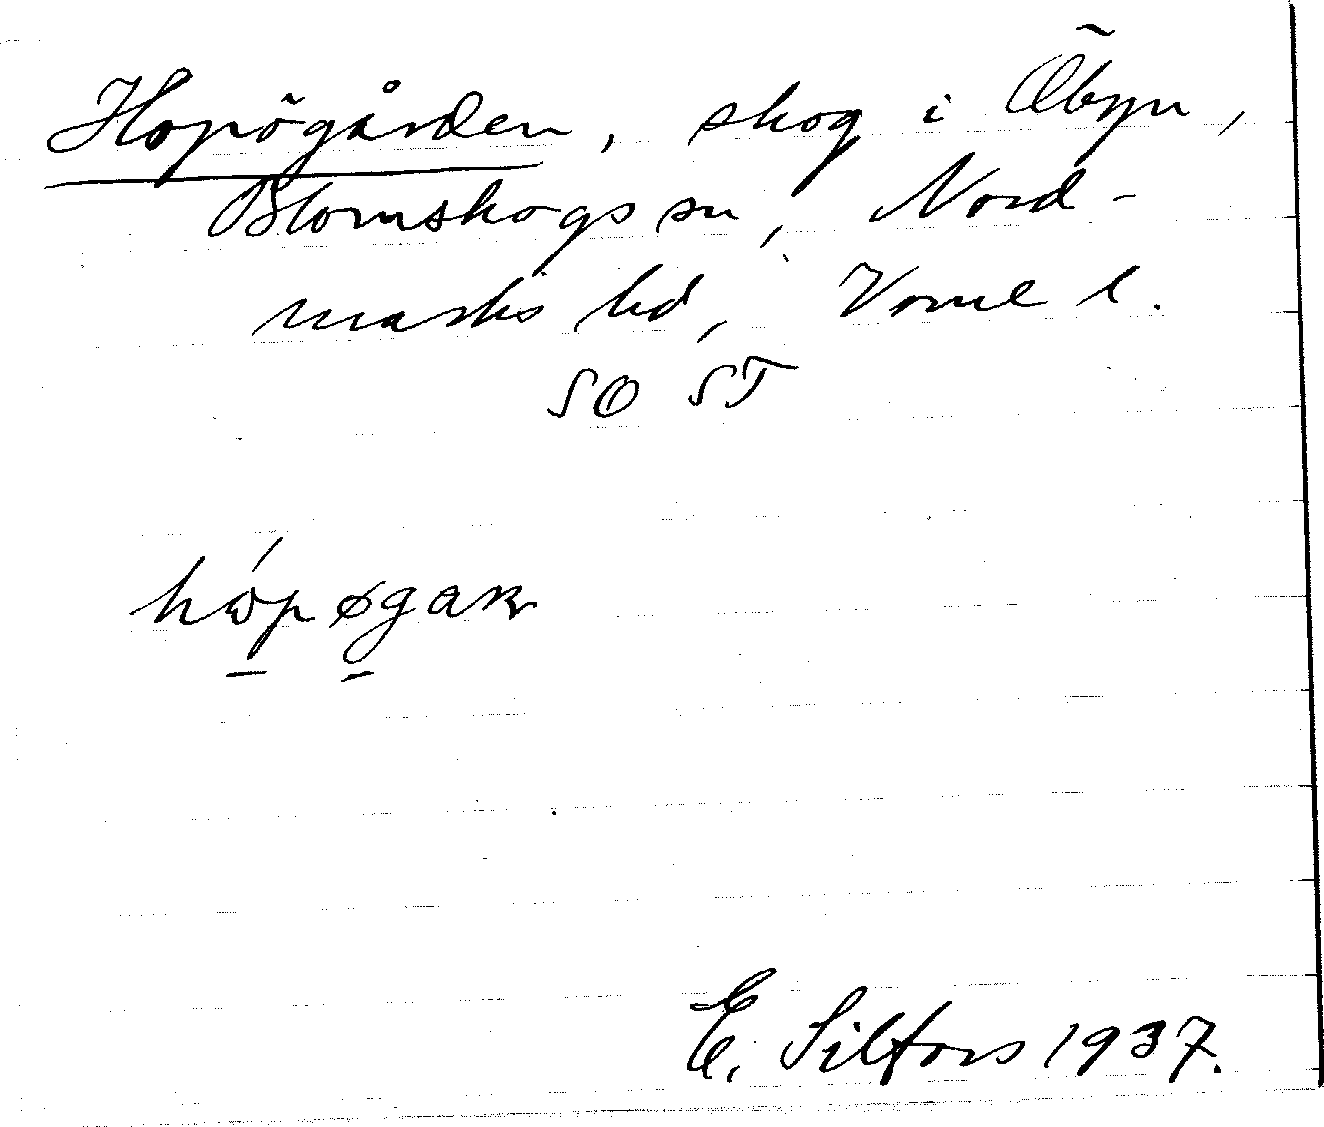 Hopögården, skog i Öbyn,
Blomskogs sn, Nord-
marks hd, Värml l.
SO ST
hópøgaɳ
E. Silfors 1937.